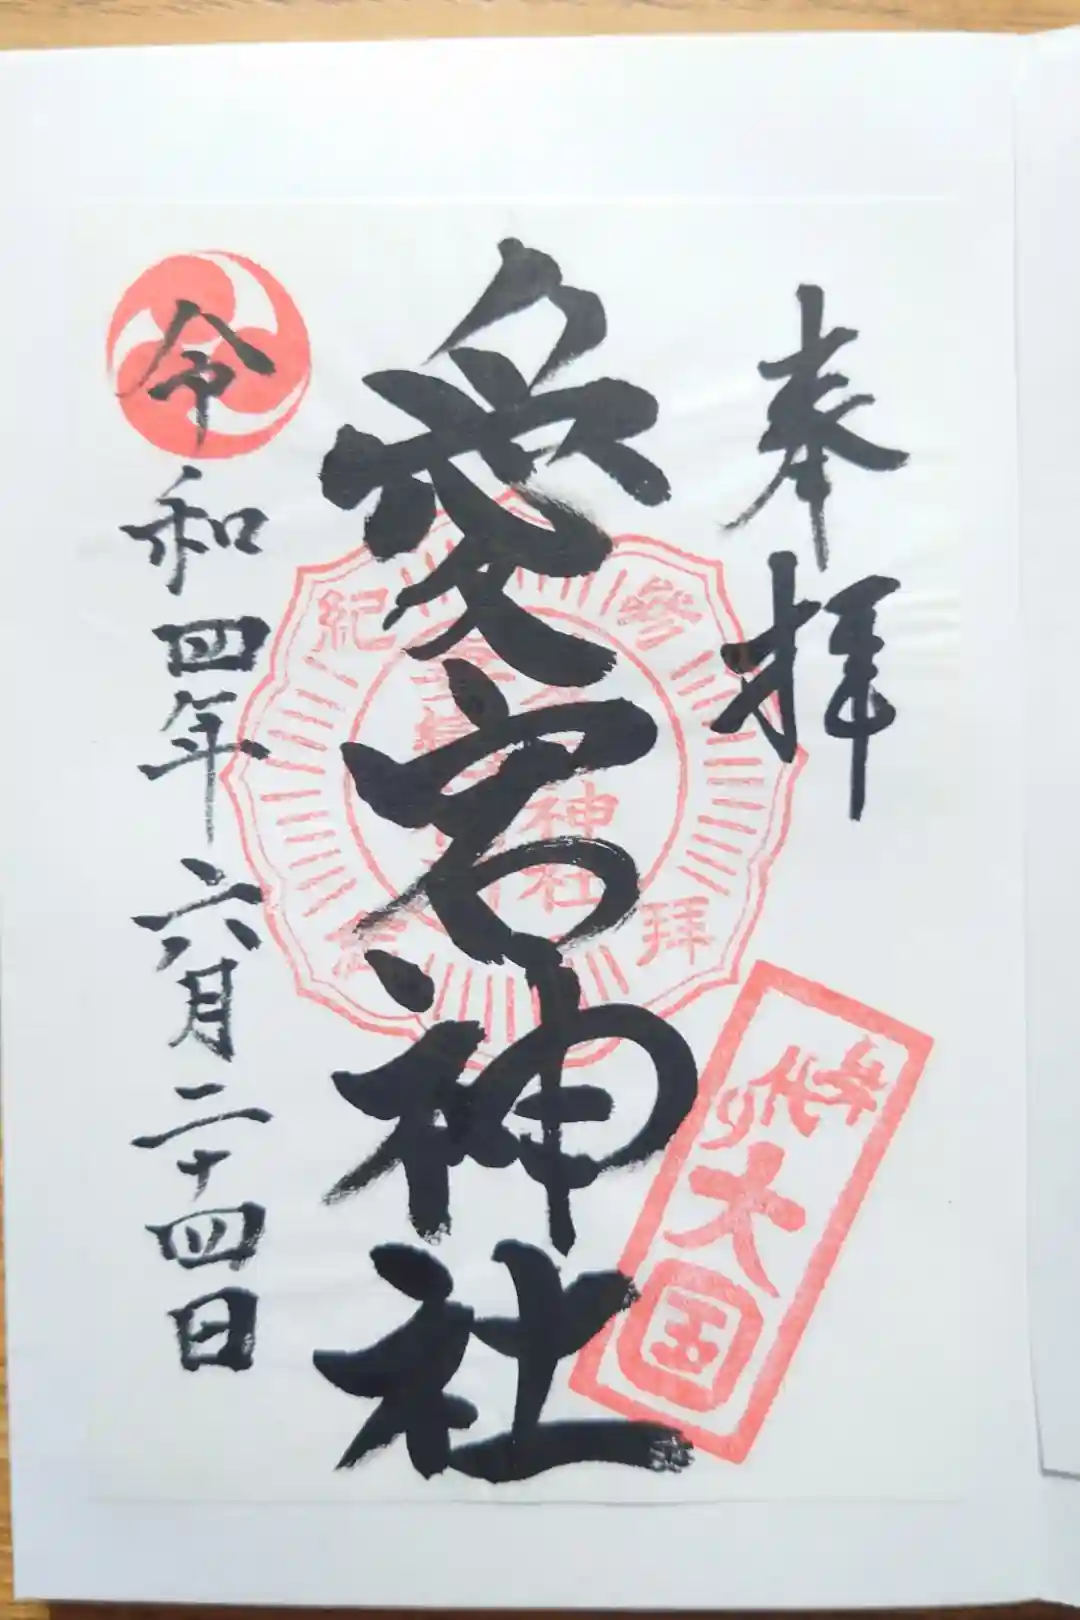 奉拝
愛宕神社
令和四年六月二十四日
參拝
紀念
神社
身代り大国